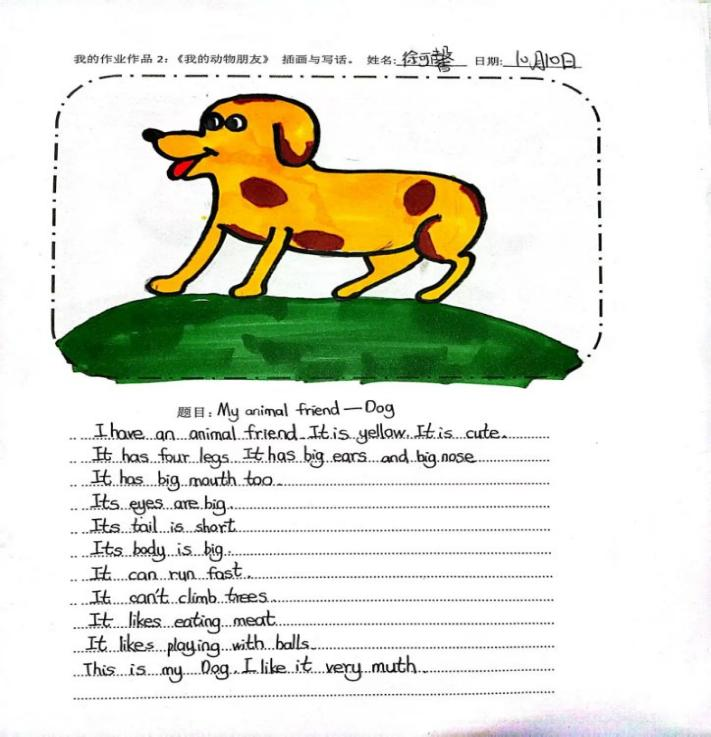 我的作业作品 2:《我的动物朋友》 插画与写话。 姓名: 徐可馨 日期: 10月10日
题目: My animal friend—Dog
I have an animal friend. It is yellow. It is cute.
It has four legs. It has big ears and big nose
It has big mouth too.
Its eyes are big.
Its tail is short
Its body is big.
It can run fast.
It can't climb trees.
It likes eating meat
It likes playing with balls.
This is my Dog. I like it very muth.